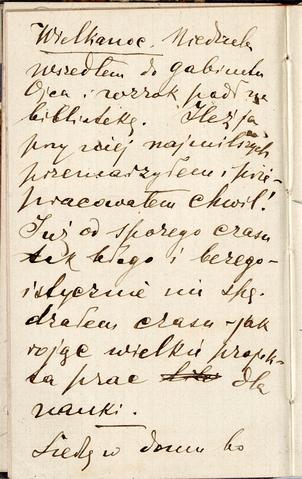 Wielkanoc. Niedziela
wszedłem do gabinetu
Ojca i wzrok padł na
bibliotekę. Ileż ja
przy niej najmilszych
przemarzyłem i prze-
pracowałem chwil!
Już od sporego czasu
tak błogo i bezego-
istycznie nie spę-
dzałem czasu – jak
rojąc wielkie projek-
ta prac dla
nauki.
Siedzę w domu bo